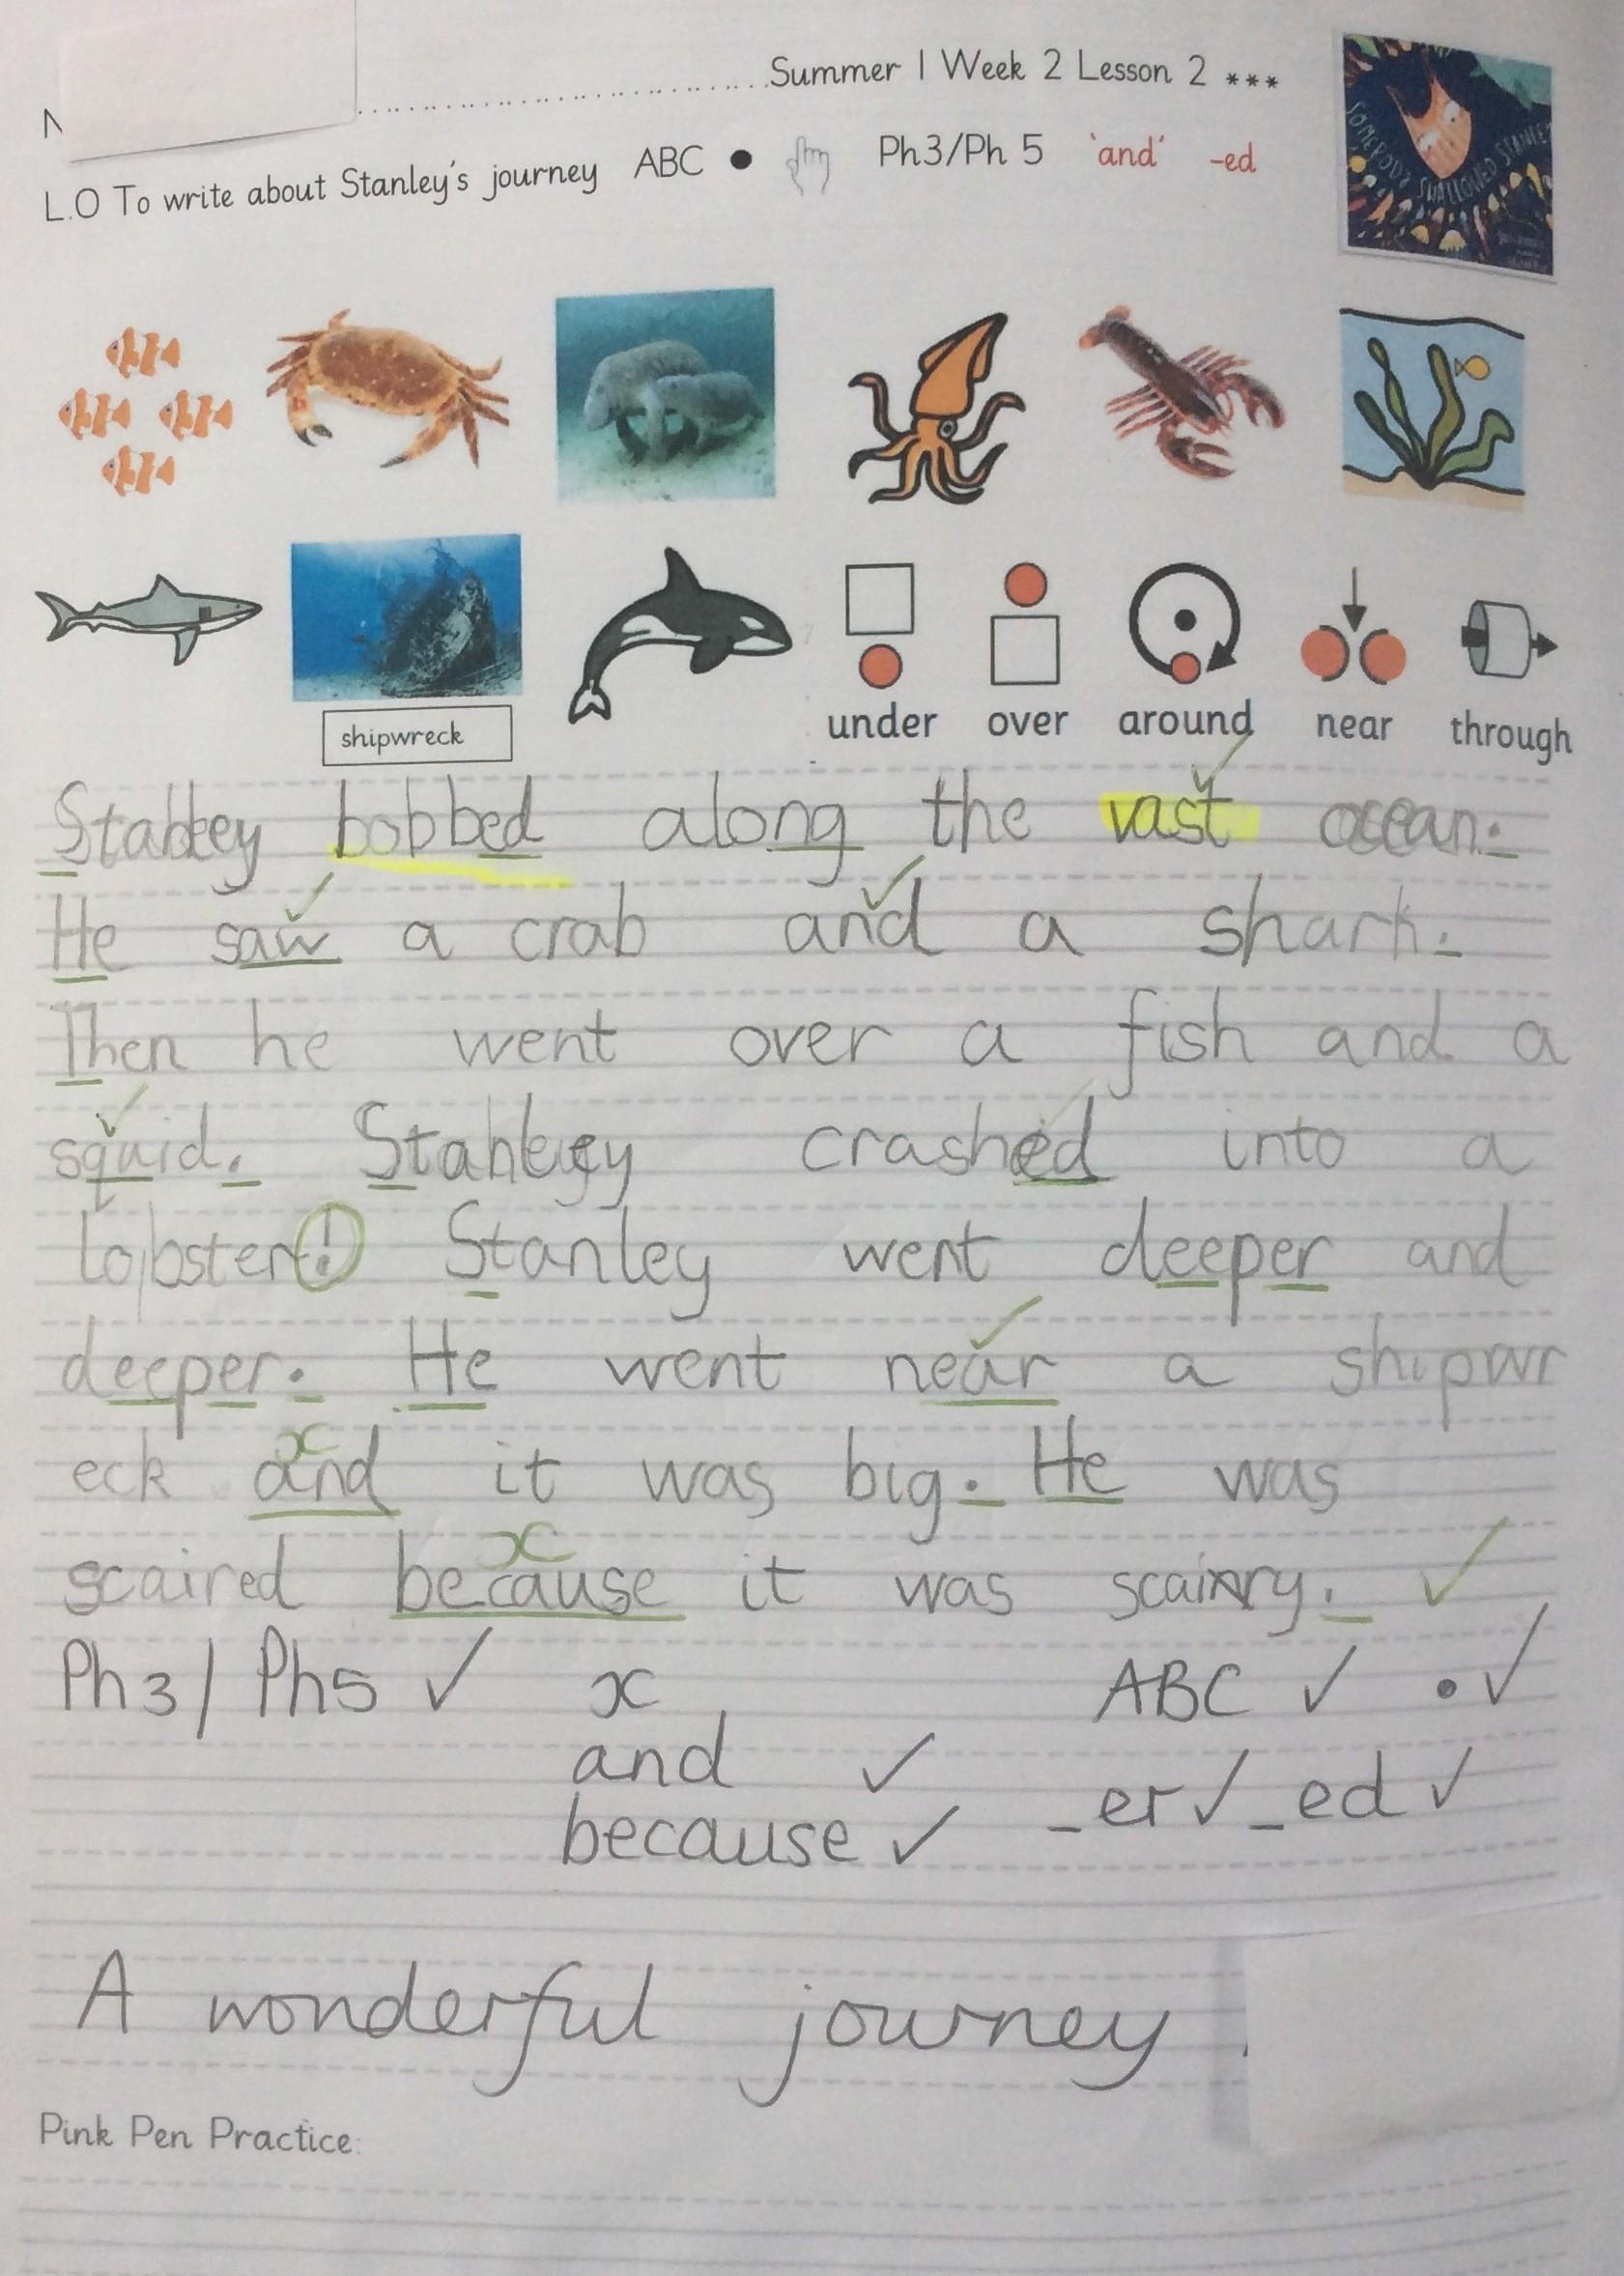 N
Summer 1 Week 2 Lesson 2 ***
L.O To write about Stanley's journey ABC ● Ph3/Ph 5 'and' -ed
SOMEBODY SWALLOWED STANLEY
shipwreck
under over around near through
Stanley bobbed along the vast ocean.
He saw a crab and a shark.
Then he went over a fish and a
squid. Stanley crashed into a
lobster! Stanley went deeper and
deeper. He went near a shipwr
eck and it was big. He was
scaired because it was scairy. ✓
Ph3/ Ph5 ✓ x ABC ✓ • ✓
and ✓
because ✓ _er ✓ _ed ✓
A wonderful journey
Pink Pen Practice: